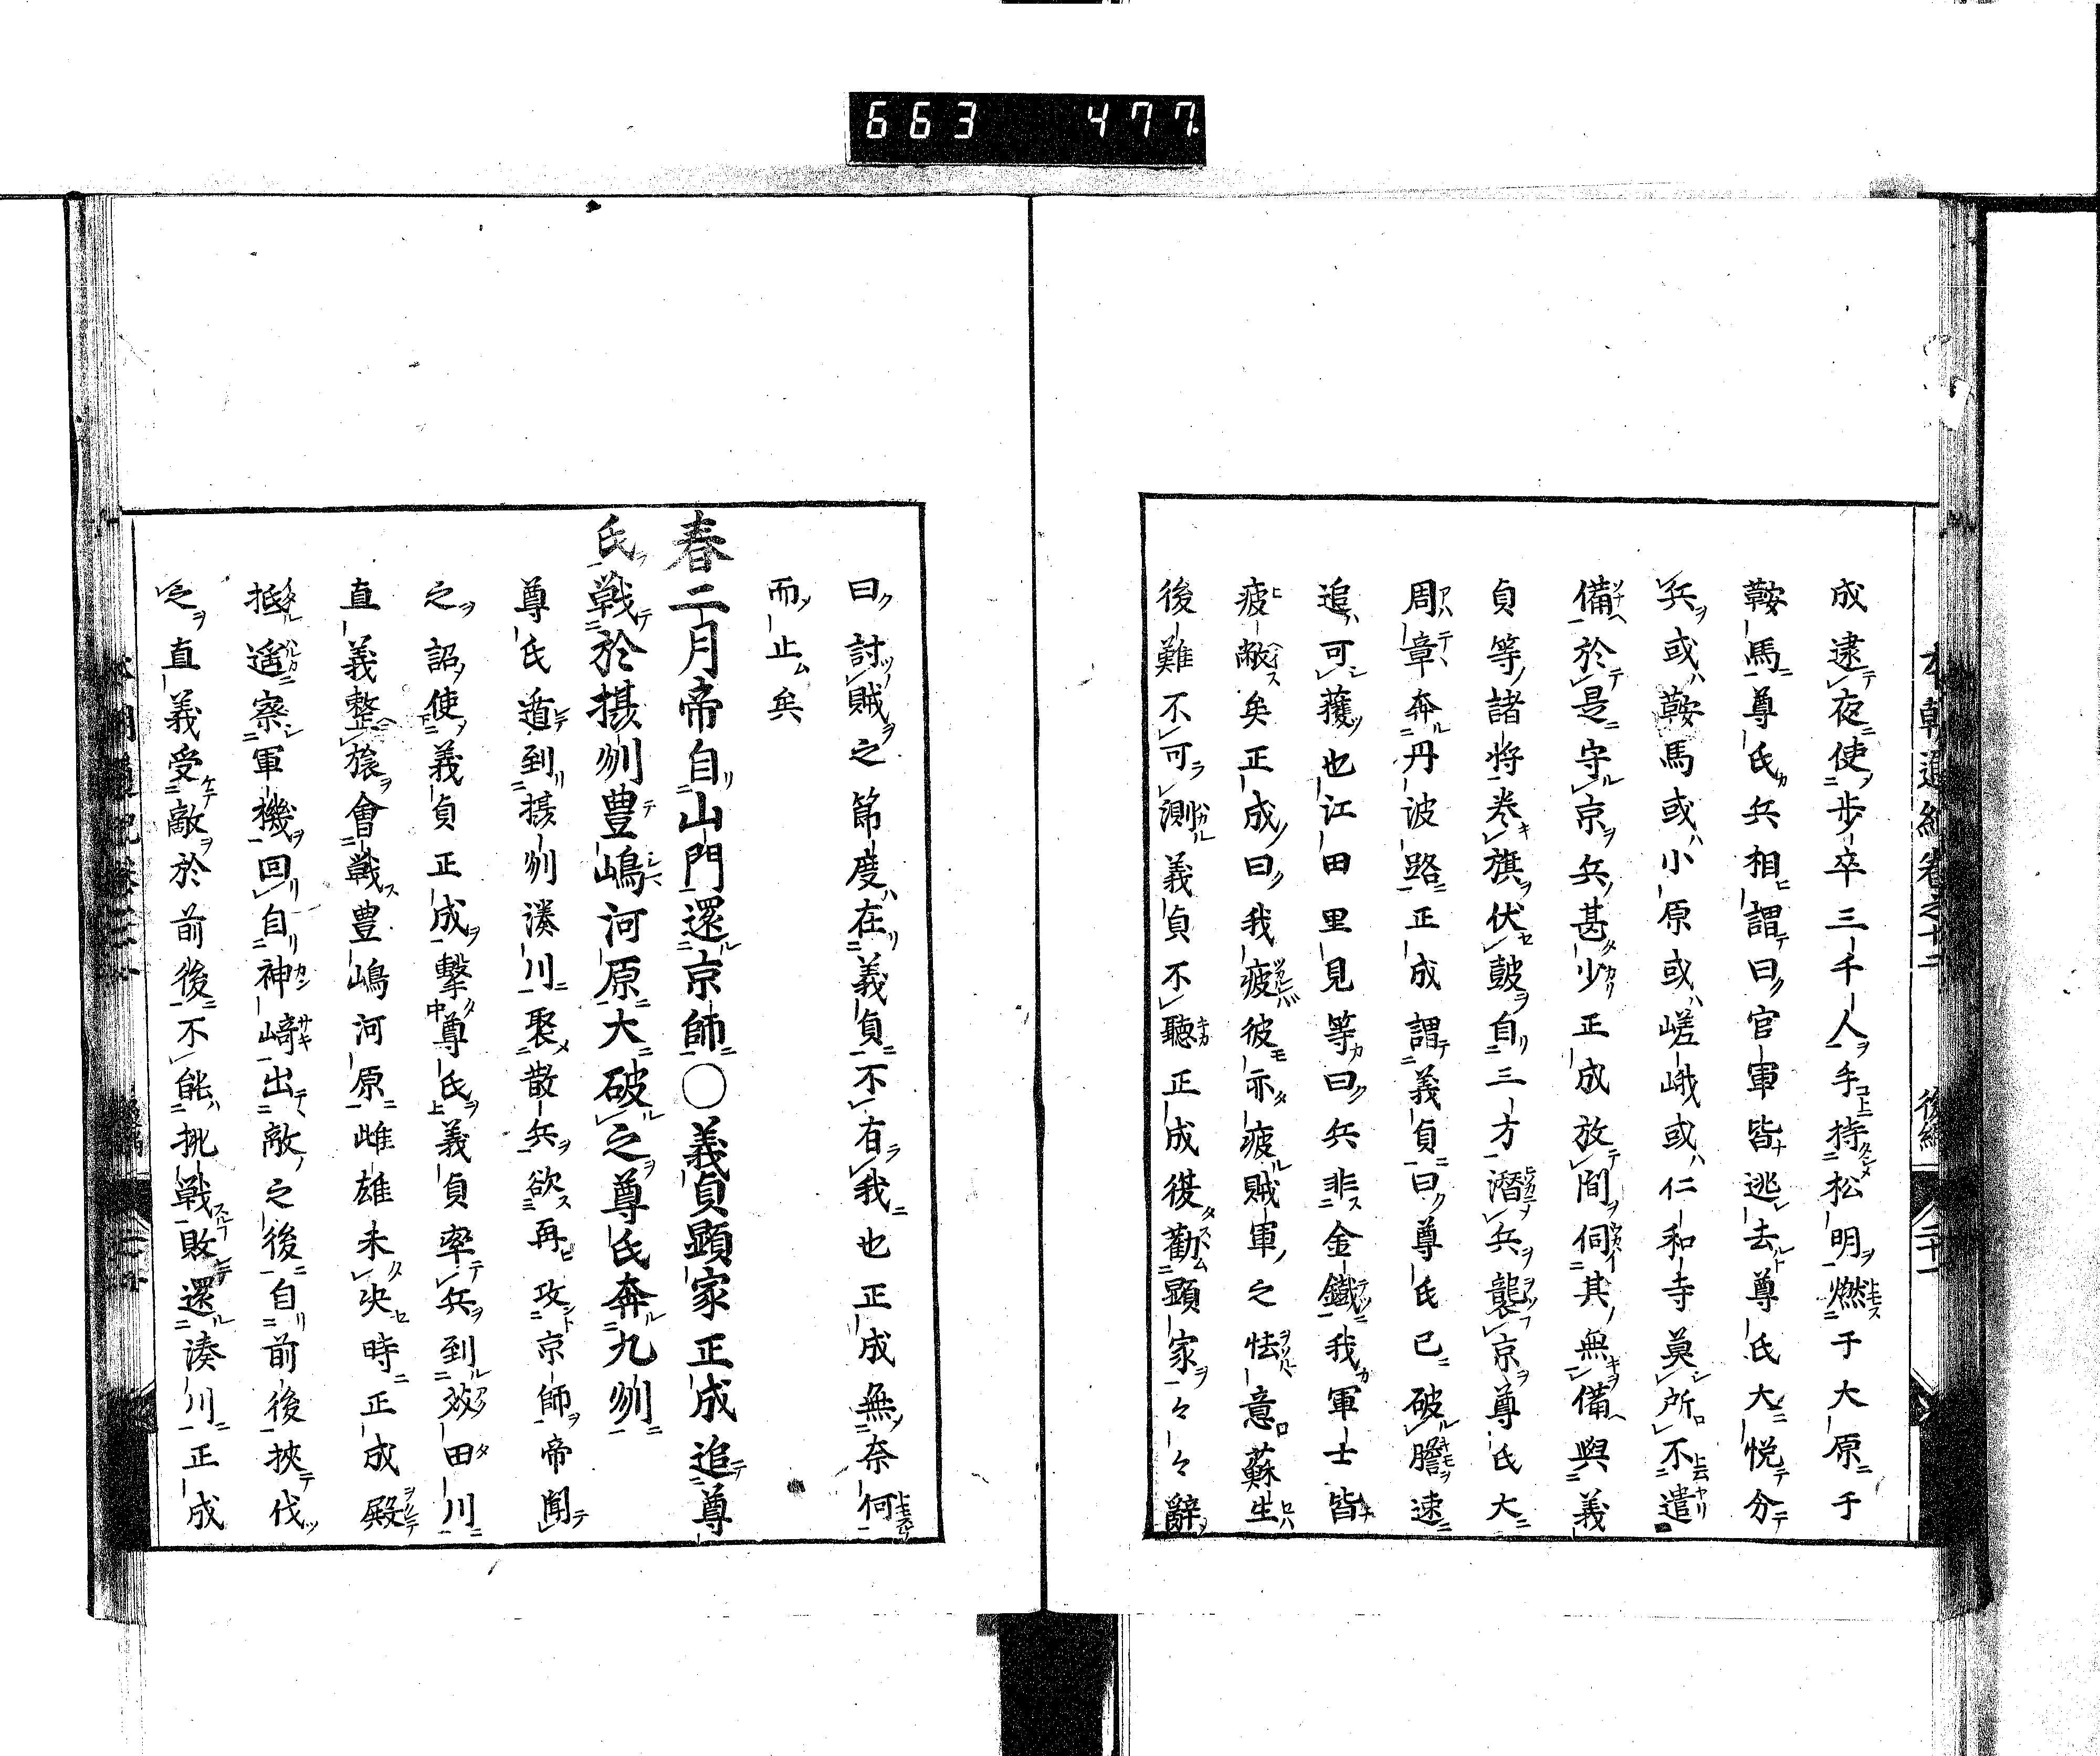 663 477
後編
成逮夜使歩卒三千人手持松明燃于大原于
鞍馬尊氏兵相謂曰官軍皆逃去尊氏大悦分
兵或鞍馬或小原或嵯峨或仁和寺莫所不遣
備於是守京兵甚少正成放間伺其無備與義
貞等諸将巻旗伏鼓自三方潜兵襲京尊氏大
周章奔丹波路正成謂義貞曰尊氏已破膽速
追可獲也江田里見等曰兵非金鐵我軍士皆
疲敝矣正成曰我疲彼亦疲賊軍之怯意蘇生
後難不可測義貞不聴正成復勸顕家々々辭
曰討賊之節度在義貞不有我也正成無奈何
而止矣
春二月帝自山門還京師〇義貞顕家正成追尊
氏戦於摂州豊嶋河原大破之尊氏奔九州
尊氏遁到摂州湊川聚散兵欲再攻京師帝聞
之詔使義貞正成撃尊氏義貞率兵到芥田川
直義整旅會戦豊嶋河原雌雄未决時正成殿
抵遥察軍機回自神﨑出敵之後自前後挾伐
之直義受敵於前後不能挑戦敗還湊川正成